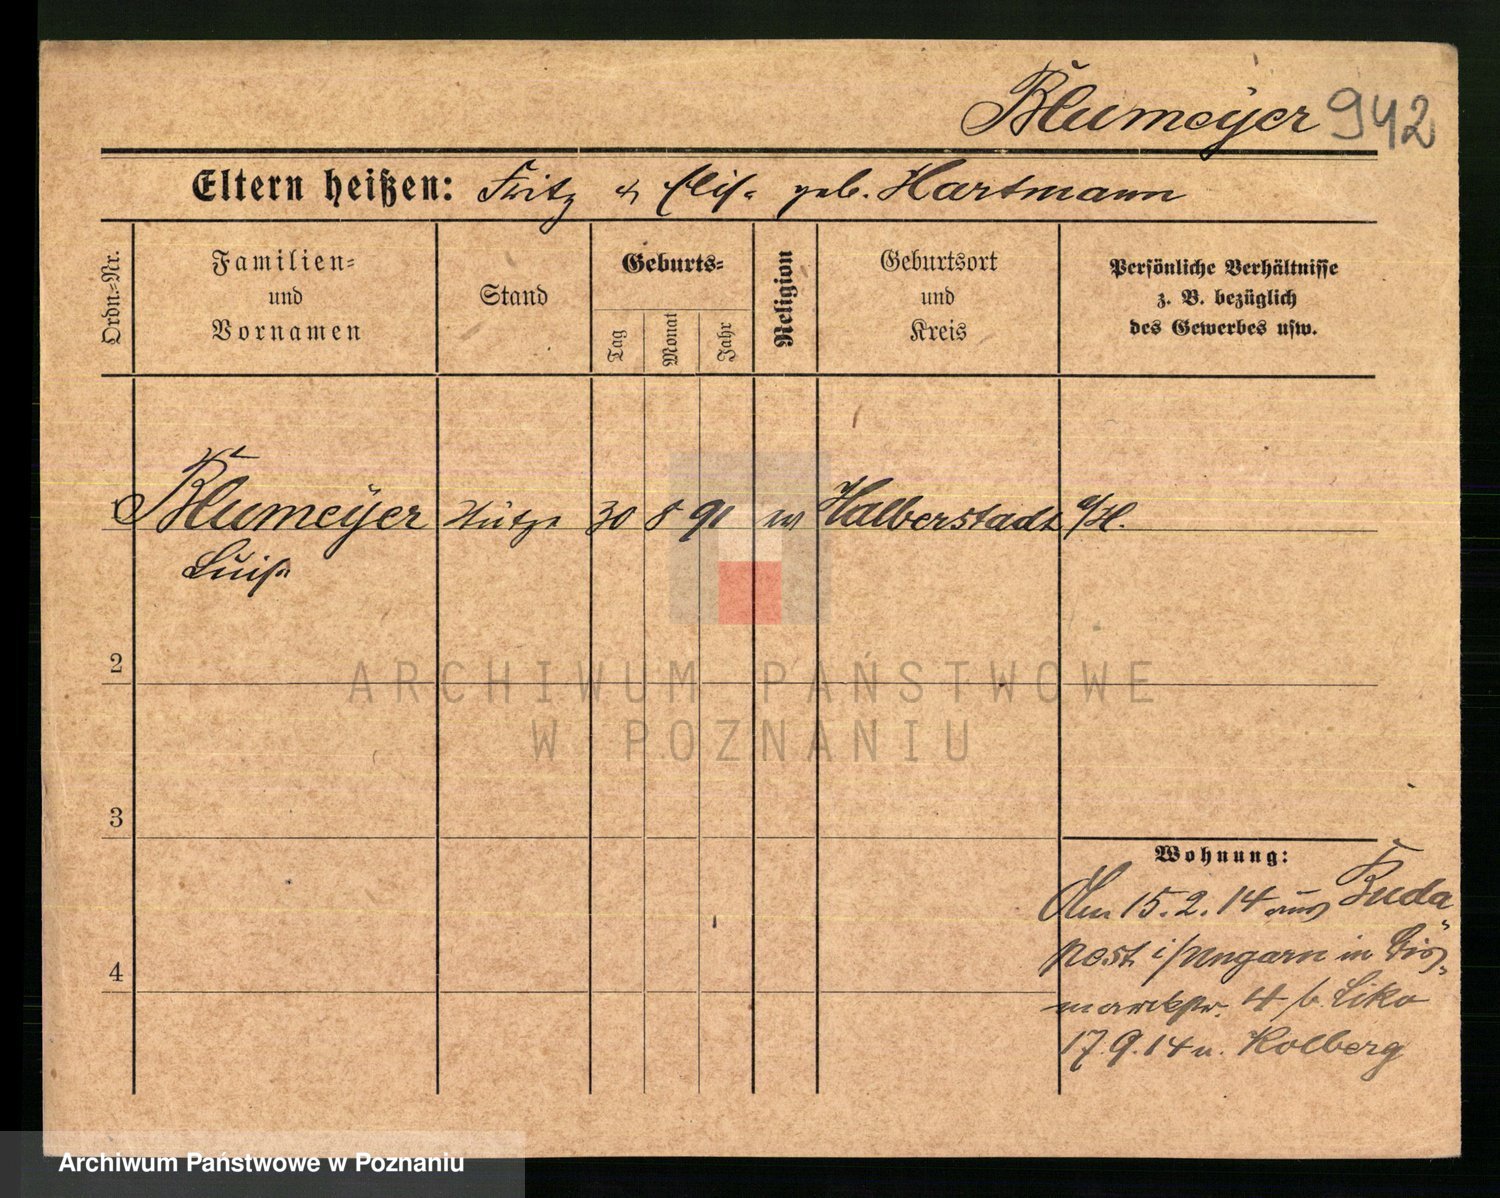 Blumeyer 942
Eltern heißen: Fritz & Elise geb. Hartmann
Ordn.-Nr.
Familien-
und
Vornamen
Stand
Geburts-
Tag
Monat
Jahr
Religion
Geburtsort
und
Kreis
Persönliche Verhältnisse
z. B. bezüglich
des Gewerbes usw.
1 Blumeyer Stütze 30 8 91 ev Halberstadt a/H.
Luise
2
3
4
Wohnung:
Am 15.2.14 aus Buda
pest i/Ungarn in Bis-
marckstr. 4 b. Liko
17.9.14 n. Kolberg
ARCHIWUM PAŃSTWOWE
W POZNANIU
Archiwum Państwowe w Poznaniu